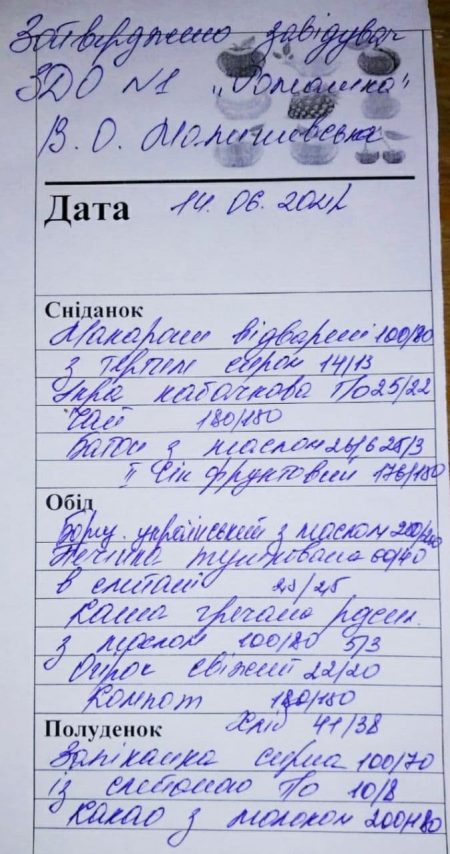 Затверджено завідувач
ЗДО №1 "Ромашка"
В. О. Малишевська
Дата 14. 06. 2021
Сніданок
Макарони відварені 100/80
з тертим сиром 14/13
Ікра кабачкова По 25/22
Чай 180/150
Батон з маслом 26/6 25/3
II Сік фруктовий 176/150
Обід
Борщ український з маслом
Печінка тушкована 60/40
в сметані 25/25
Каша гречана розсип.
з маслом 100/80 5/3
Огірок свіжий 22/20
Компот 180/150
Полуденок Хліб 41/38
Запіканка сирна 100/70
із сметаною По 10/8
Какао з молоком 200/180